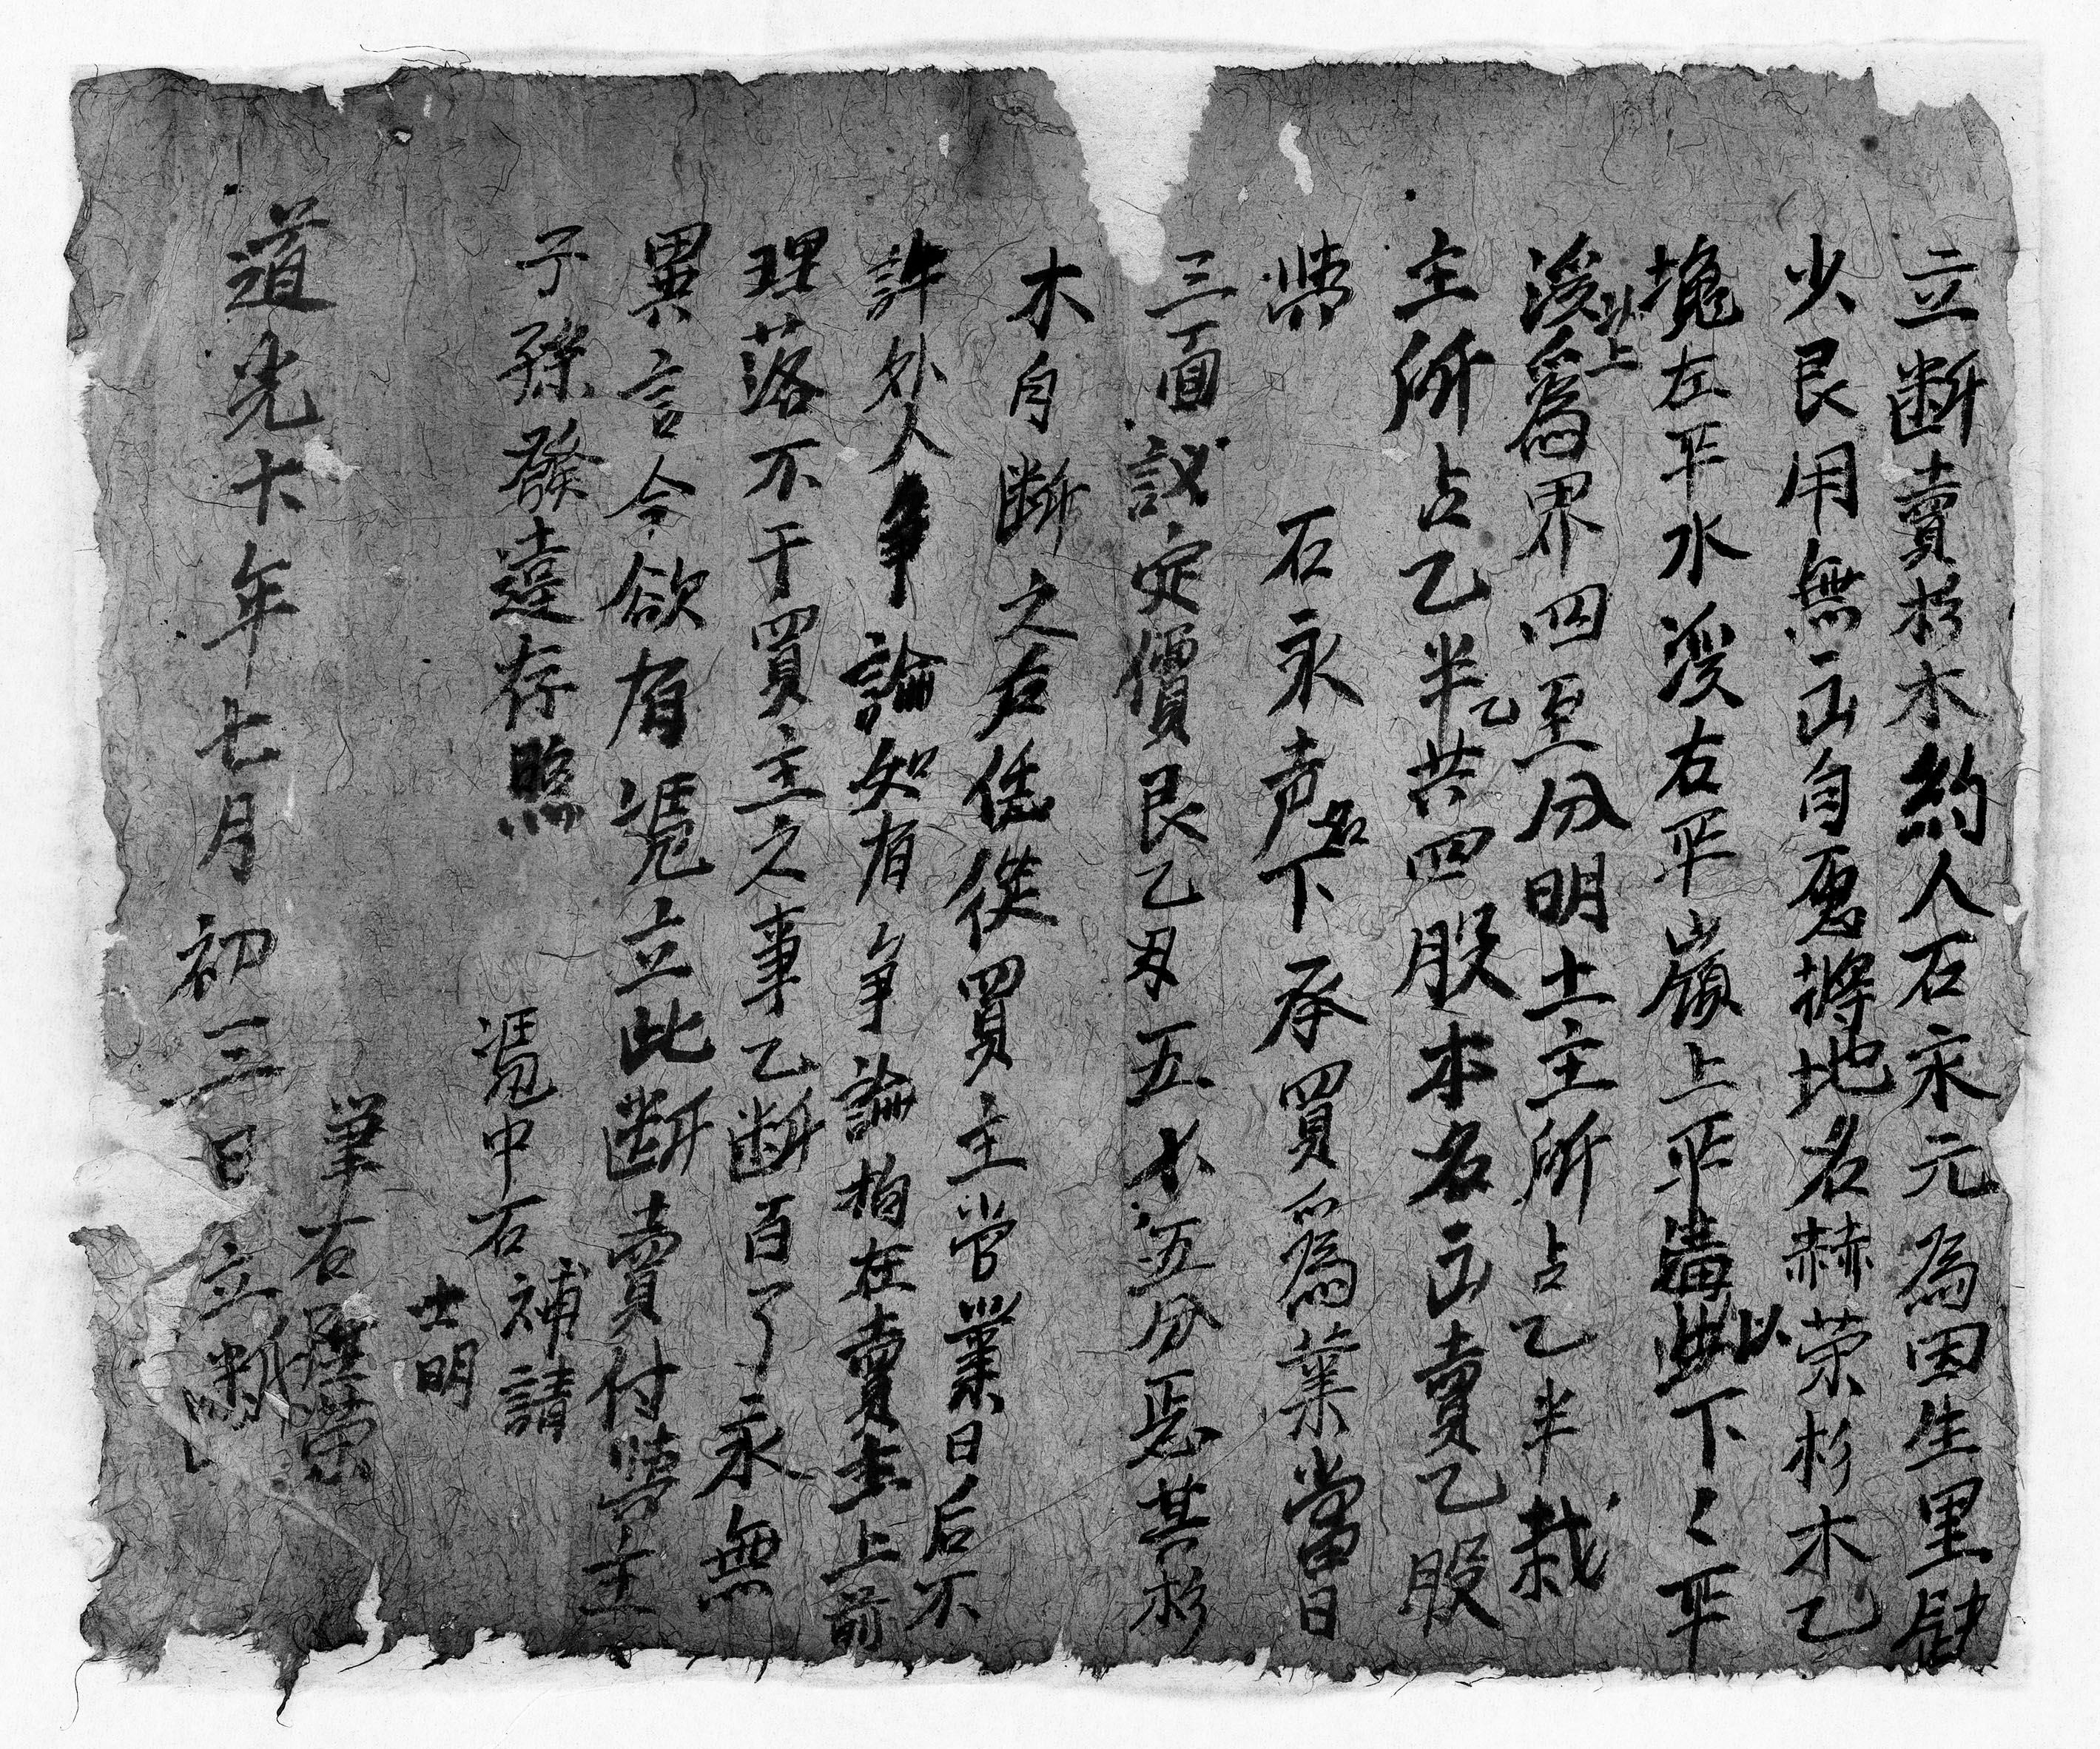 立断賣杉木約人石永元為因生里缺
少艮用無正自愿將地名赫荣杉木乙
塊左平水溪右平嶺上平溝以此下〻平
溪以上為界四至分明土主所占乙半栽
主所占乙半乙共四股本名正賣乙股
與 石永声名下承買為業當日
三面議定價艮乙両五木五分悉其杉
木自断之后任從買主管業日后不
許外人争論如有争論拘在賣主上前
理落不干買主之事乙断百了永無
異言今欲有凭立此断賣付買主
子孫發達存照
凭中石 補請
士明
筆石 榮
道光十年七月初三日 立断